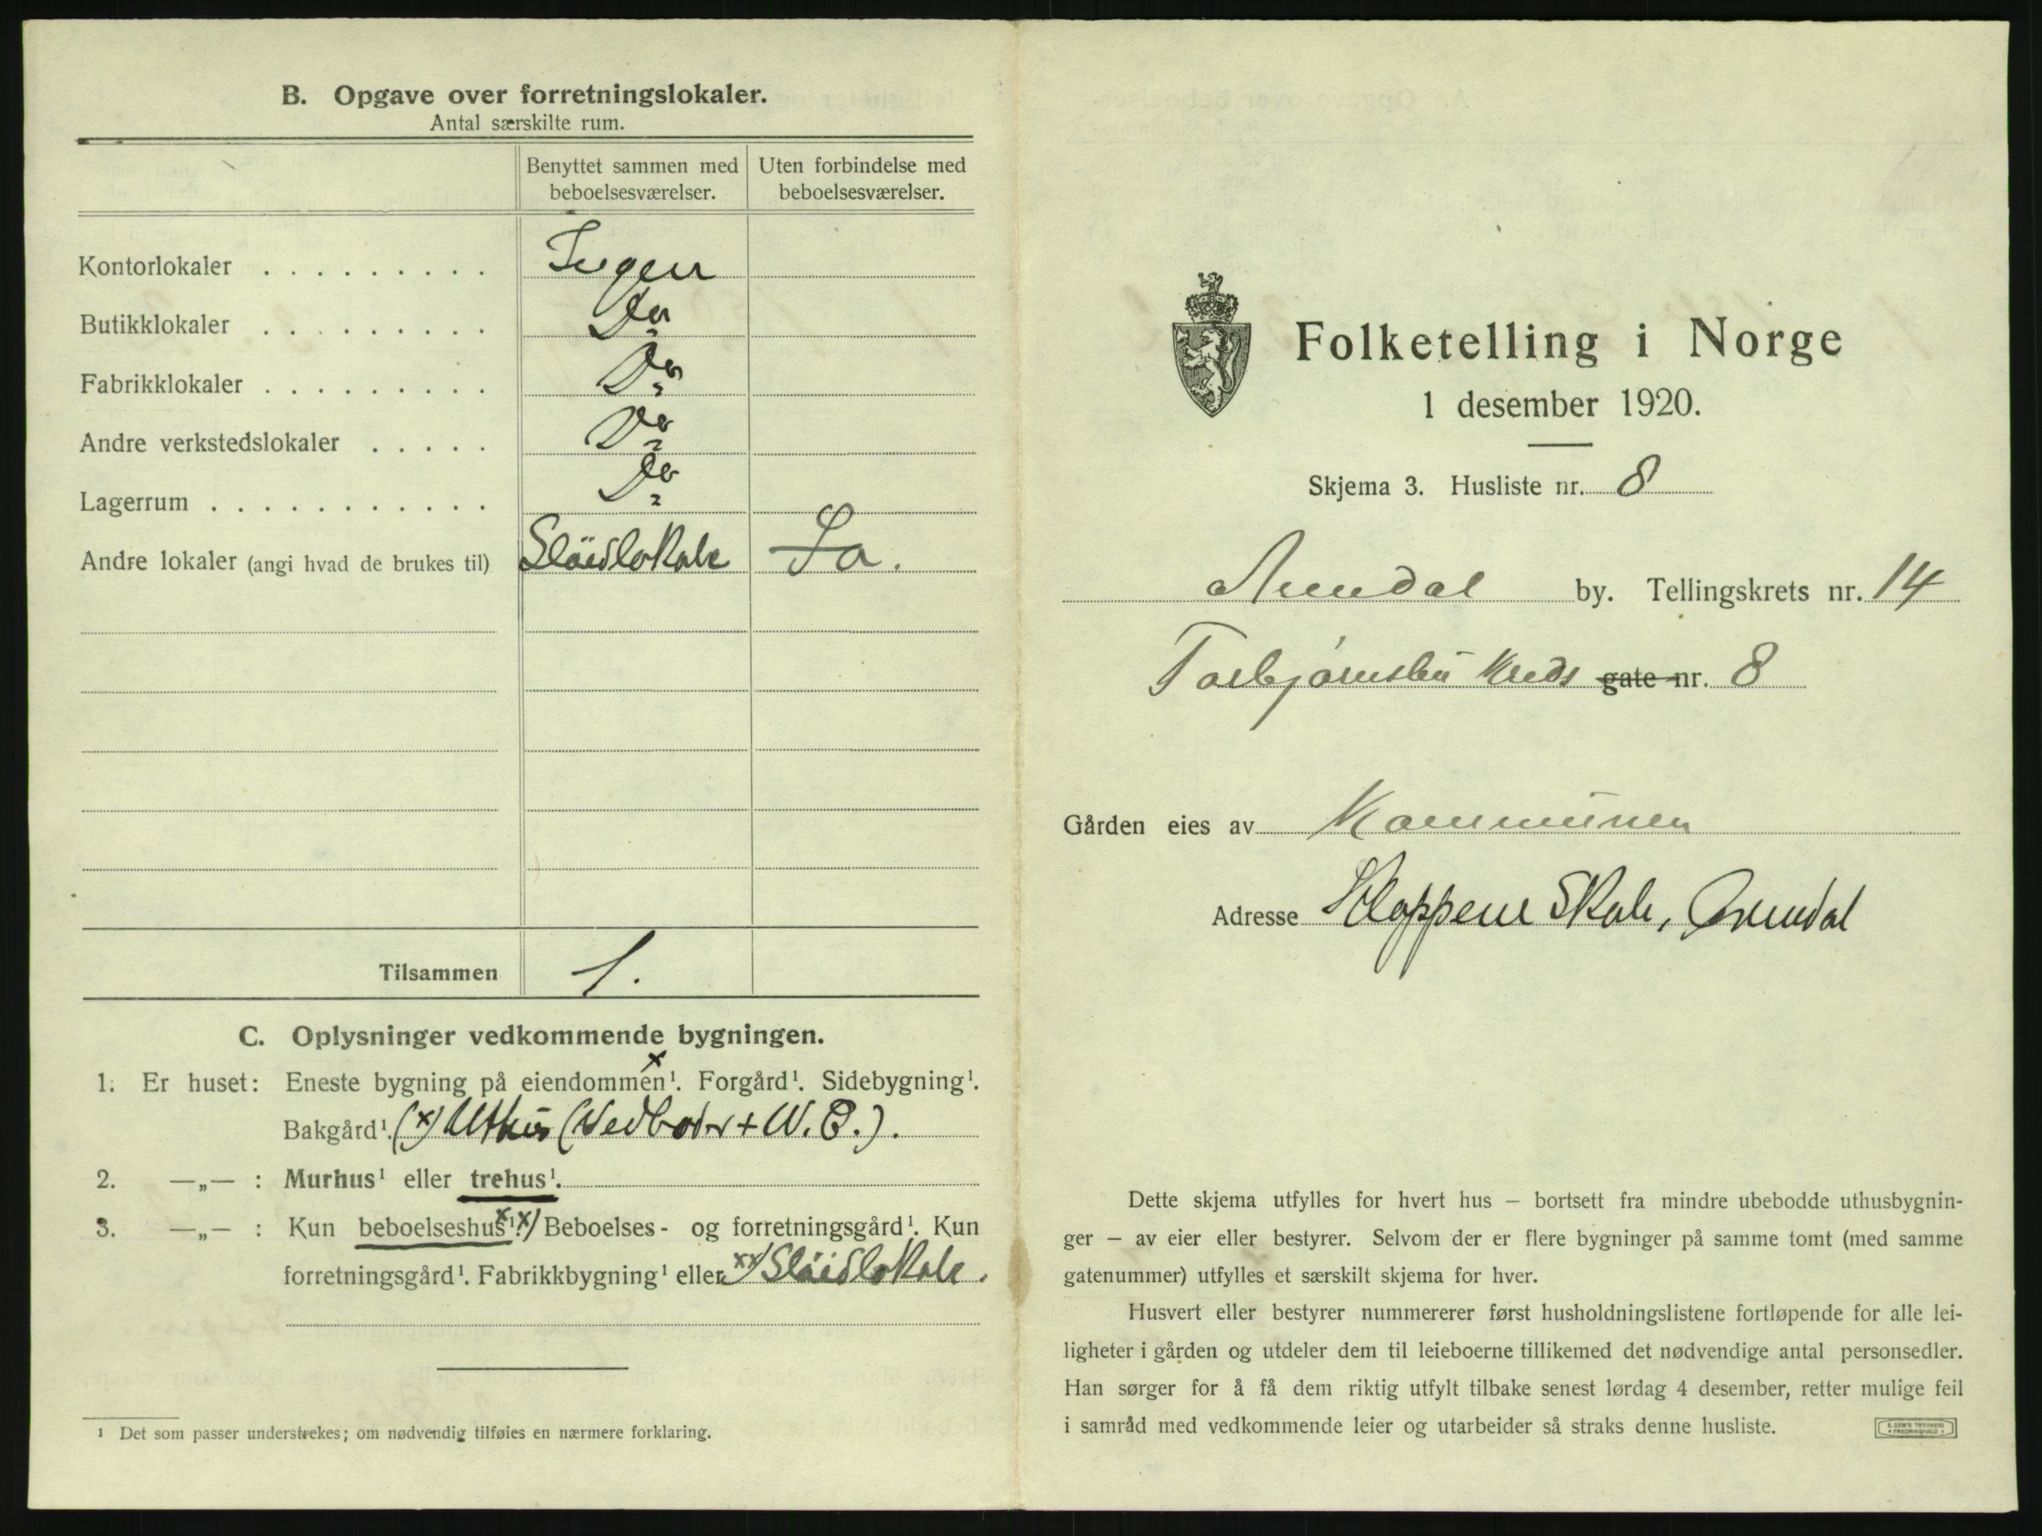 B. Opgave over forretningslokaler.
Antal særskilte rum.
Benyttet sammen med beboelsesværelser.
Uten forbindelse med beboelsesværelser.
Kontorlokaler . . . . . . . . . Ingen
Butikklokaler . . . . . . . . Do
Fabrikklokaler . . . . . . . . Do
Andre verkstedslokaler . . . . . Do
Lagerrum . . . . . . . . . . . . Do
Andre lokaler (angi hvad de brukes til) Slöidlokale
Tilsammen 1.
C. Oplysninger vedkommende bygningen.
1. Er huset: Eneste bygning på eiendommen¹. x Forgård¹. Sidebygning¹.
Bakgård¹. (x) Uthus (Vedboder + W.C.).
2. —„— : Murhus¹ eller trehus¹.
3. —„— : Kun beboelseshus¹. xx) Beboelses- og forretningsgård¹. Kun
forretningsgård¹. Fabrikkbygning¹ eller xx) Slöidlokale.
¹ Det som passer understrekes; om nødvendig tilføies en nærmere forklaring.
Folketelling i Norge
1 desember 1920.
Skjema 3. Husliste nr. 8
Arendal by. Tellingskrets nr. 14
Torbjørnsbu Kreds gate nr. 8
Gården eies av Kommunen
Adresse Kloppene Skole, Arendal
Dette skjema utfylles for hvert hus – bortsett fra mindre ubebodde uthusbygnin-
ger – av eier eller bestyrer. Selvom der er flere bygninger på samme tomt (med samme
gatenummer) utfylles et særskilt skjema for hver.
Husvert eller bestyrer nummererer først husholdningslistene fortløpende for alle lei-
ligheter i gården og utdeler dem til leieboerne tillikemed det nødvendige antal personsedler.
Han sørger for å få dem riktig utfylt tilbake senest lørdag 4 desember, retter mulige feil
i samråd med vedkommende leier og utarbeider så straks denne husliste.